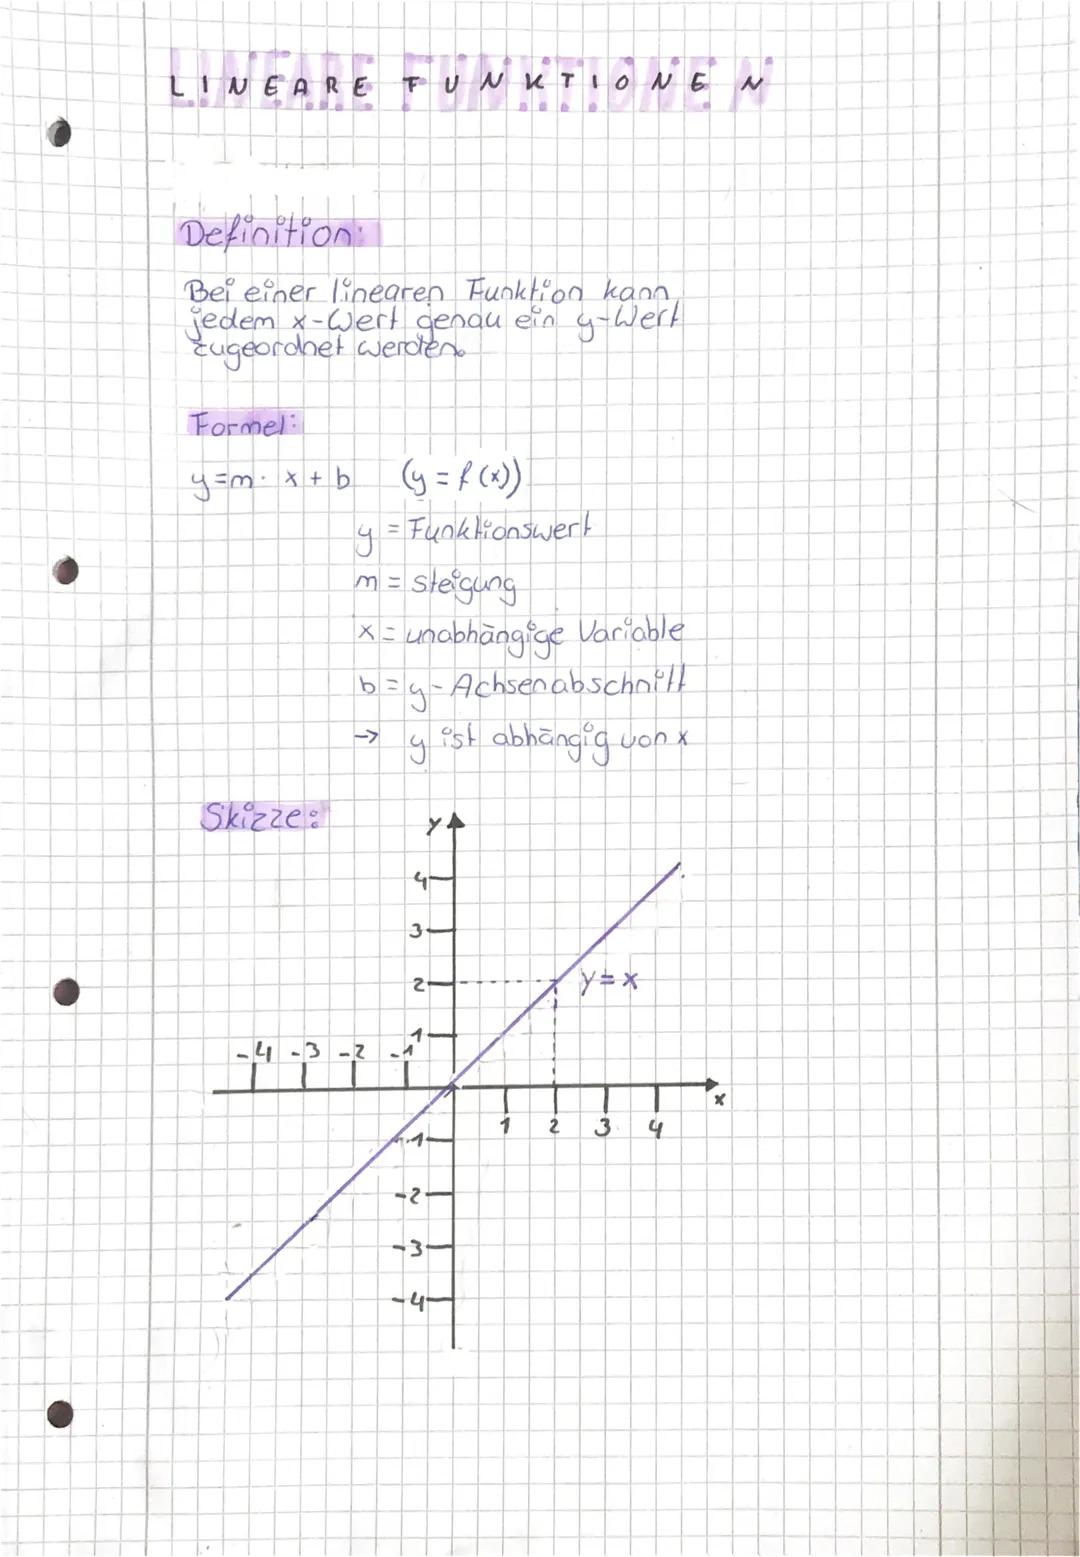 LINEARE FUNKTIONEN
Definition:
Bei einer linearen Funktion kann
jedem x-Wert genau ein y-Wert
zugeordnet werden.
Formel:
y=m· x + b (y = f(x))
y = Funktionswert
m = Steigung
x = unabhängige Variable
b = y-Achsenabschnitt
→ y ist abhängig von x
Skizze:
y
4
3
2
y = x
1
-4 -3 -2 -1
x
1 2 3 4
-1
-2
-3
-4